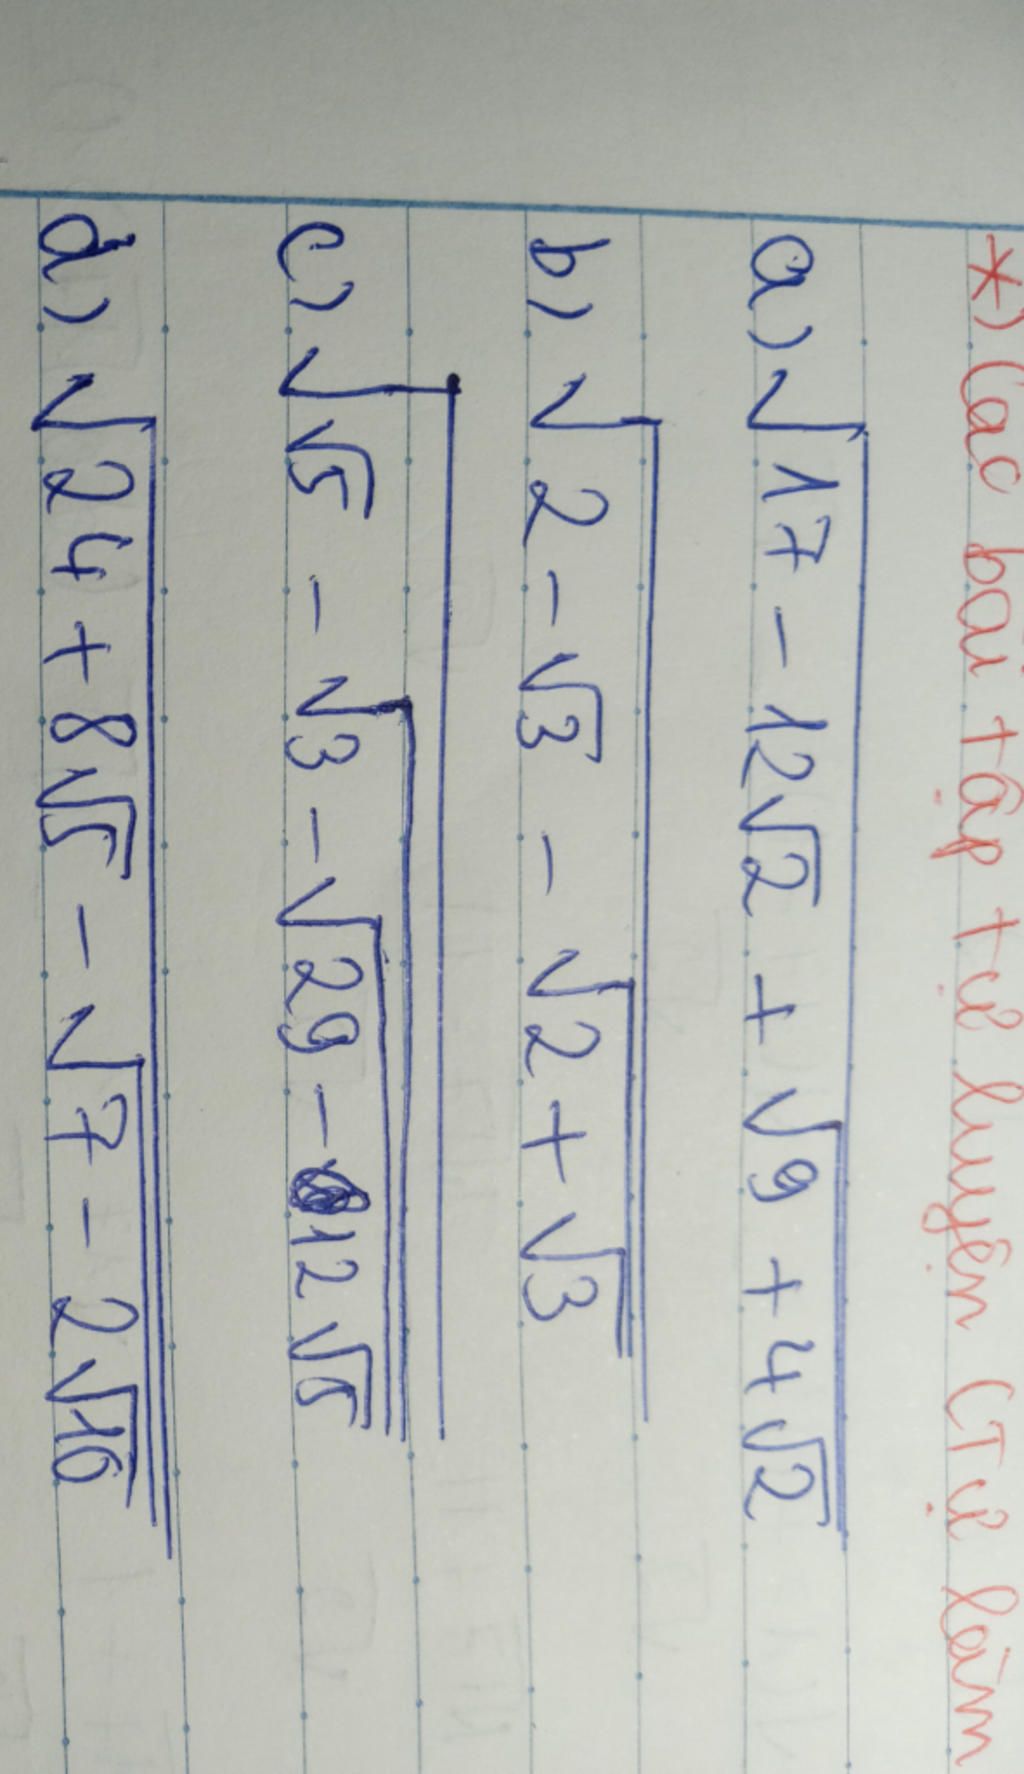 *) Các bài tập tự luyện (Tự làm
a) √17 - 12√2 + √9 + 4√2
b) √2 - √3 - √2 + √3
c) √√5 - √3 - √29 - 12√5
d) √24 + 8√5 - √7 - 2√10